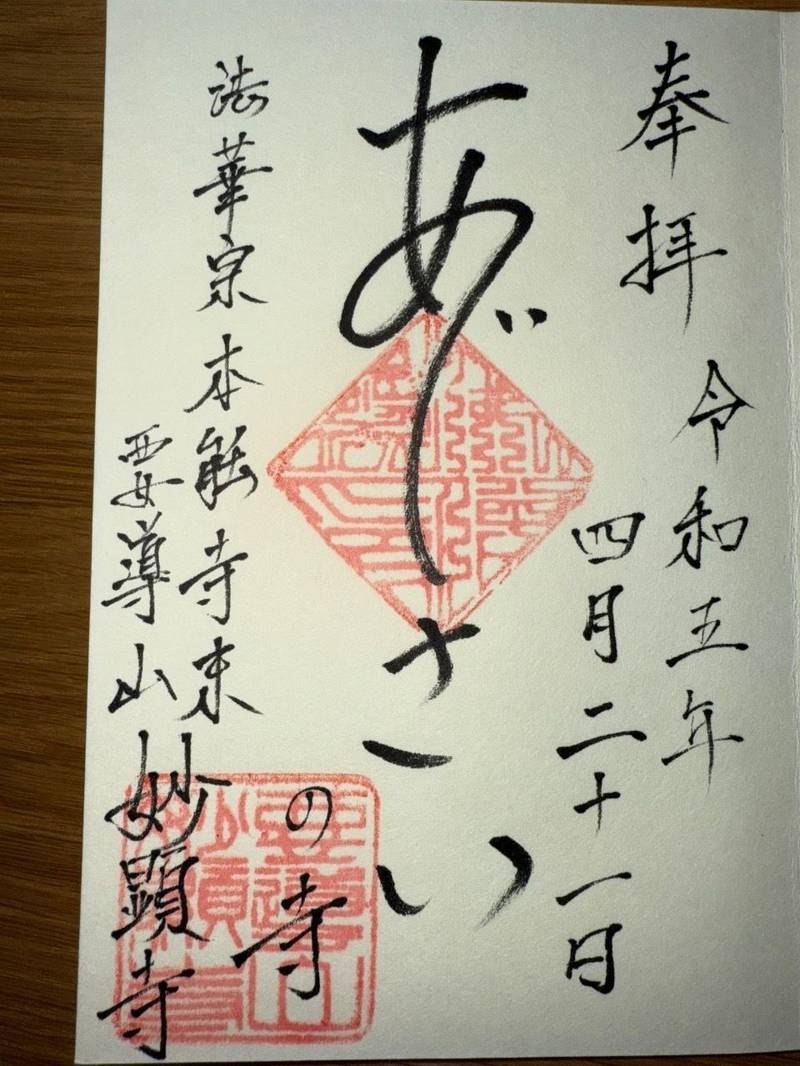 奉拝
令和五年
四月二十一日
あじさい
の寺
法華宗本能寺末
要導山妙顕寺